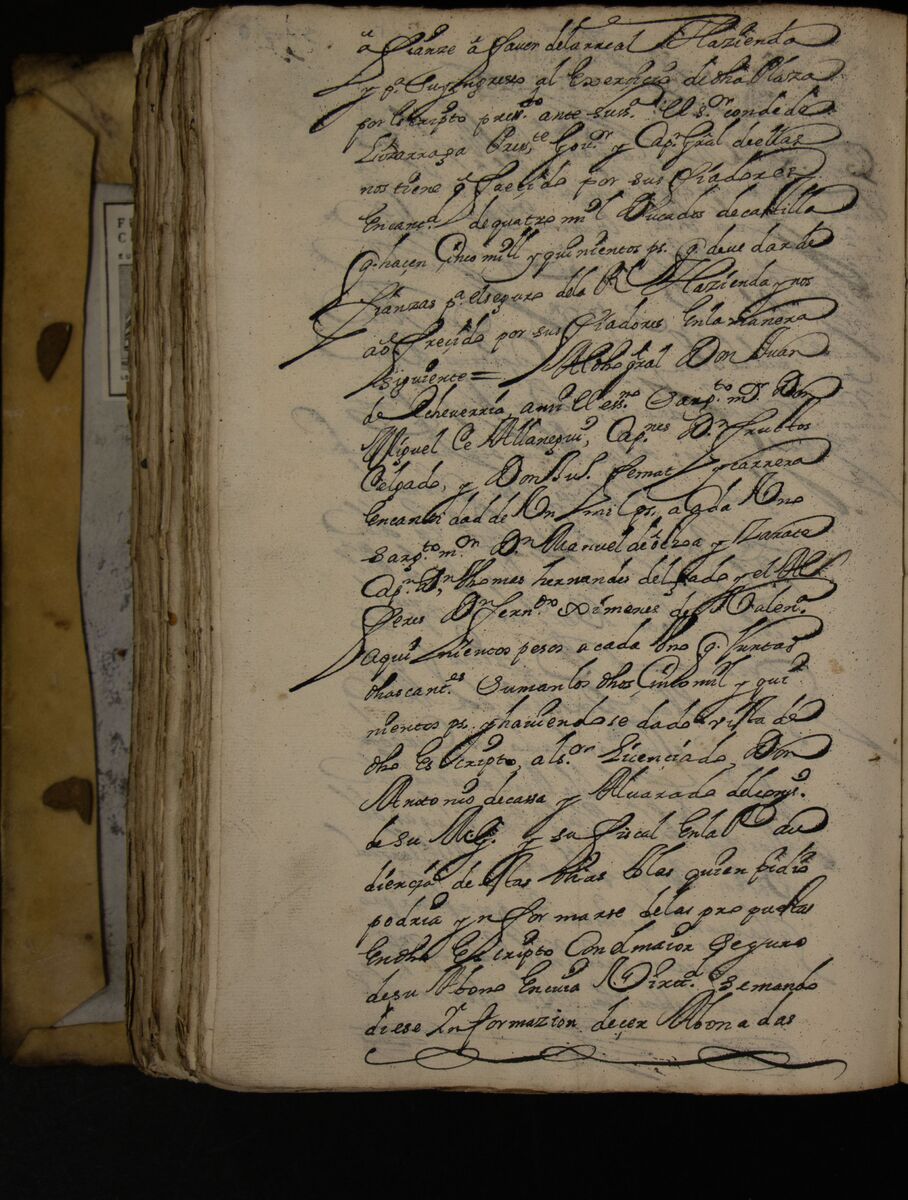 a fianze a favor de la rreal Hazienda
y pa. su yngreso al exerçiçio de dha Plaza
por escripto press.do ante su ssa. el s.or conde de
Lizarraga Press.te Gov.or y Cap.n Gral de estas
nos tiene ofreçido por sus fiadores
en cant.d de quatro mil Ducados de castilla
q. haçen Çinco mill y quinientos ps. q deve dar de
fianzas pa. el seguro de la Rl Hazienda y nos
a ofreçido por sus fiadores en la manera
siguiente = Al Gral Don Juan
de Echeverria, Sarg.to m.or Don
Miguel de Allanegui, Cap.nes D.n fructos
Delgado, y Don Lul. femat y carrera
en cantidad de Un mil ps, a cada Uno
Sarg.to m.or D.n Manuel de y Zarate
Cap.n D.n thomas hernandes del prado y el Al
feres D.n fern.do Ximenes de Valen.a
a quinientos pesos a cada Uno q. Juntas
dhas cant.es suman los dhos Çinco mil y qui
nientos ps. y haviendose dado vista de
dho escripto, al s.or Liçençiado, Don
Antonio de cassa y Alvarado del cons.o
de su Mag. y su fiscal en la Rl au
diençia de estas dhas Yslas quien pidio
podria ynformarse de las propuestas
en dho Escripto Con el maior seguro
de su Abono en cuia Virtd. se mando
diese Ynformazion de çer Abonadas